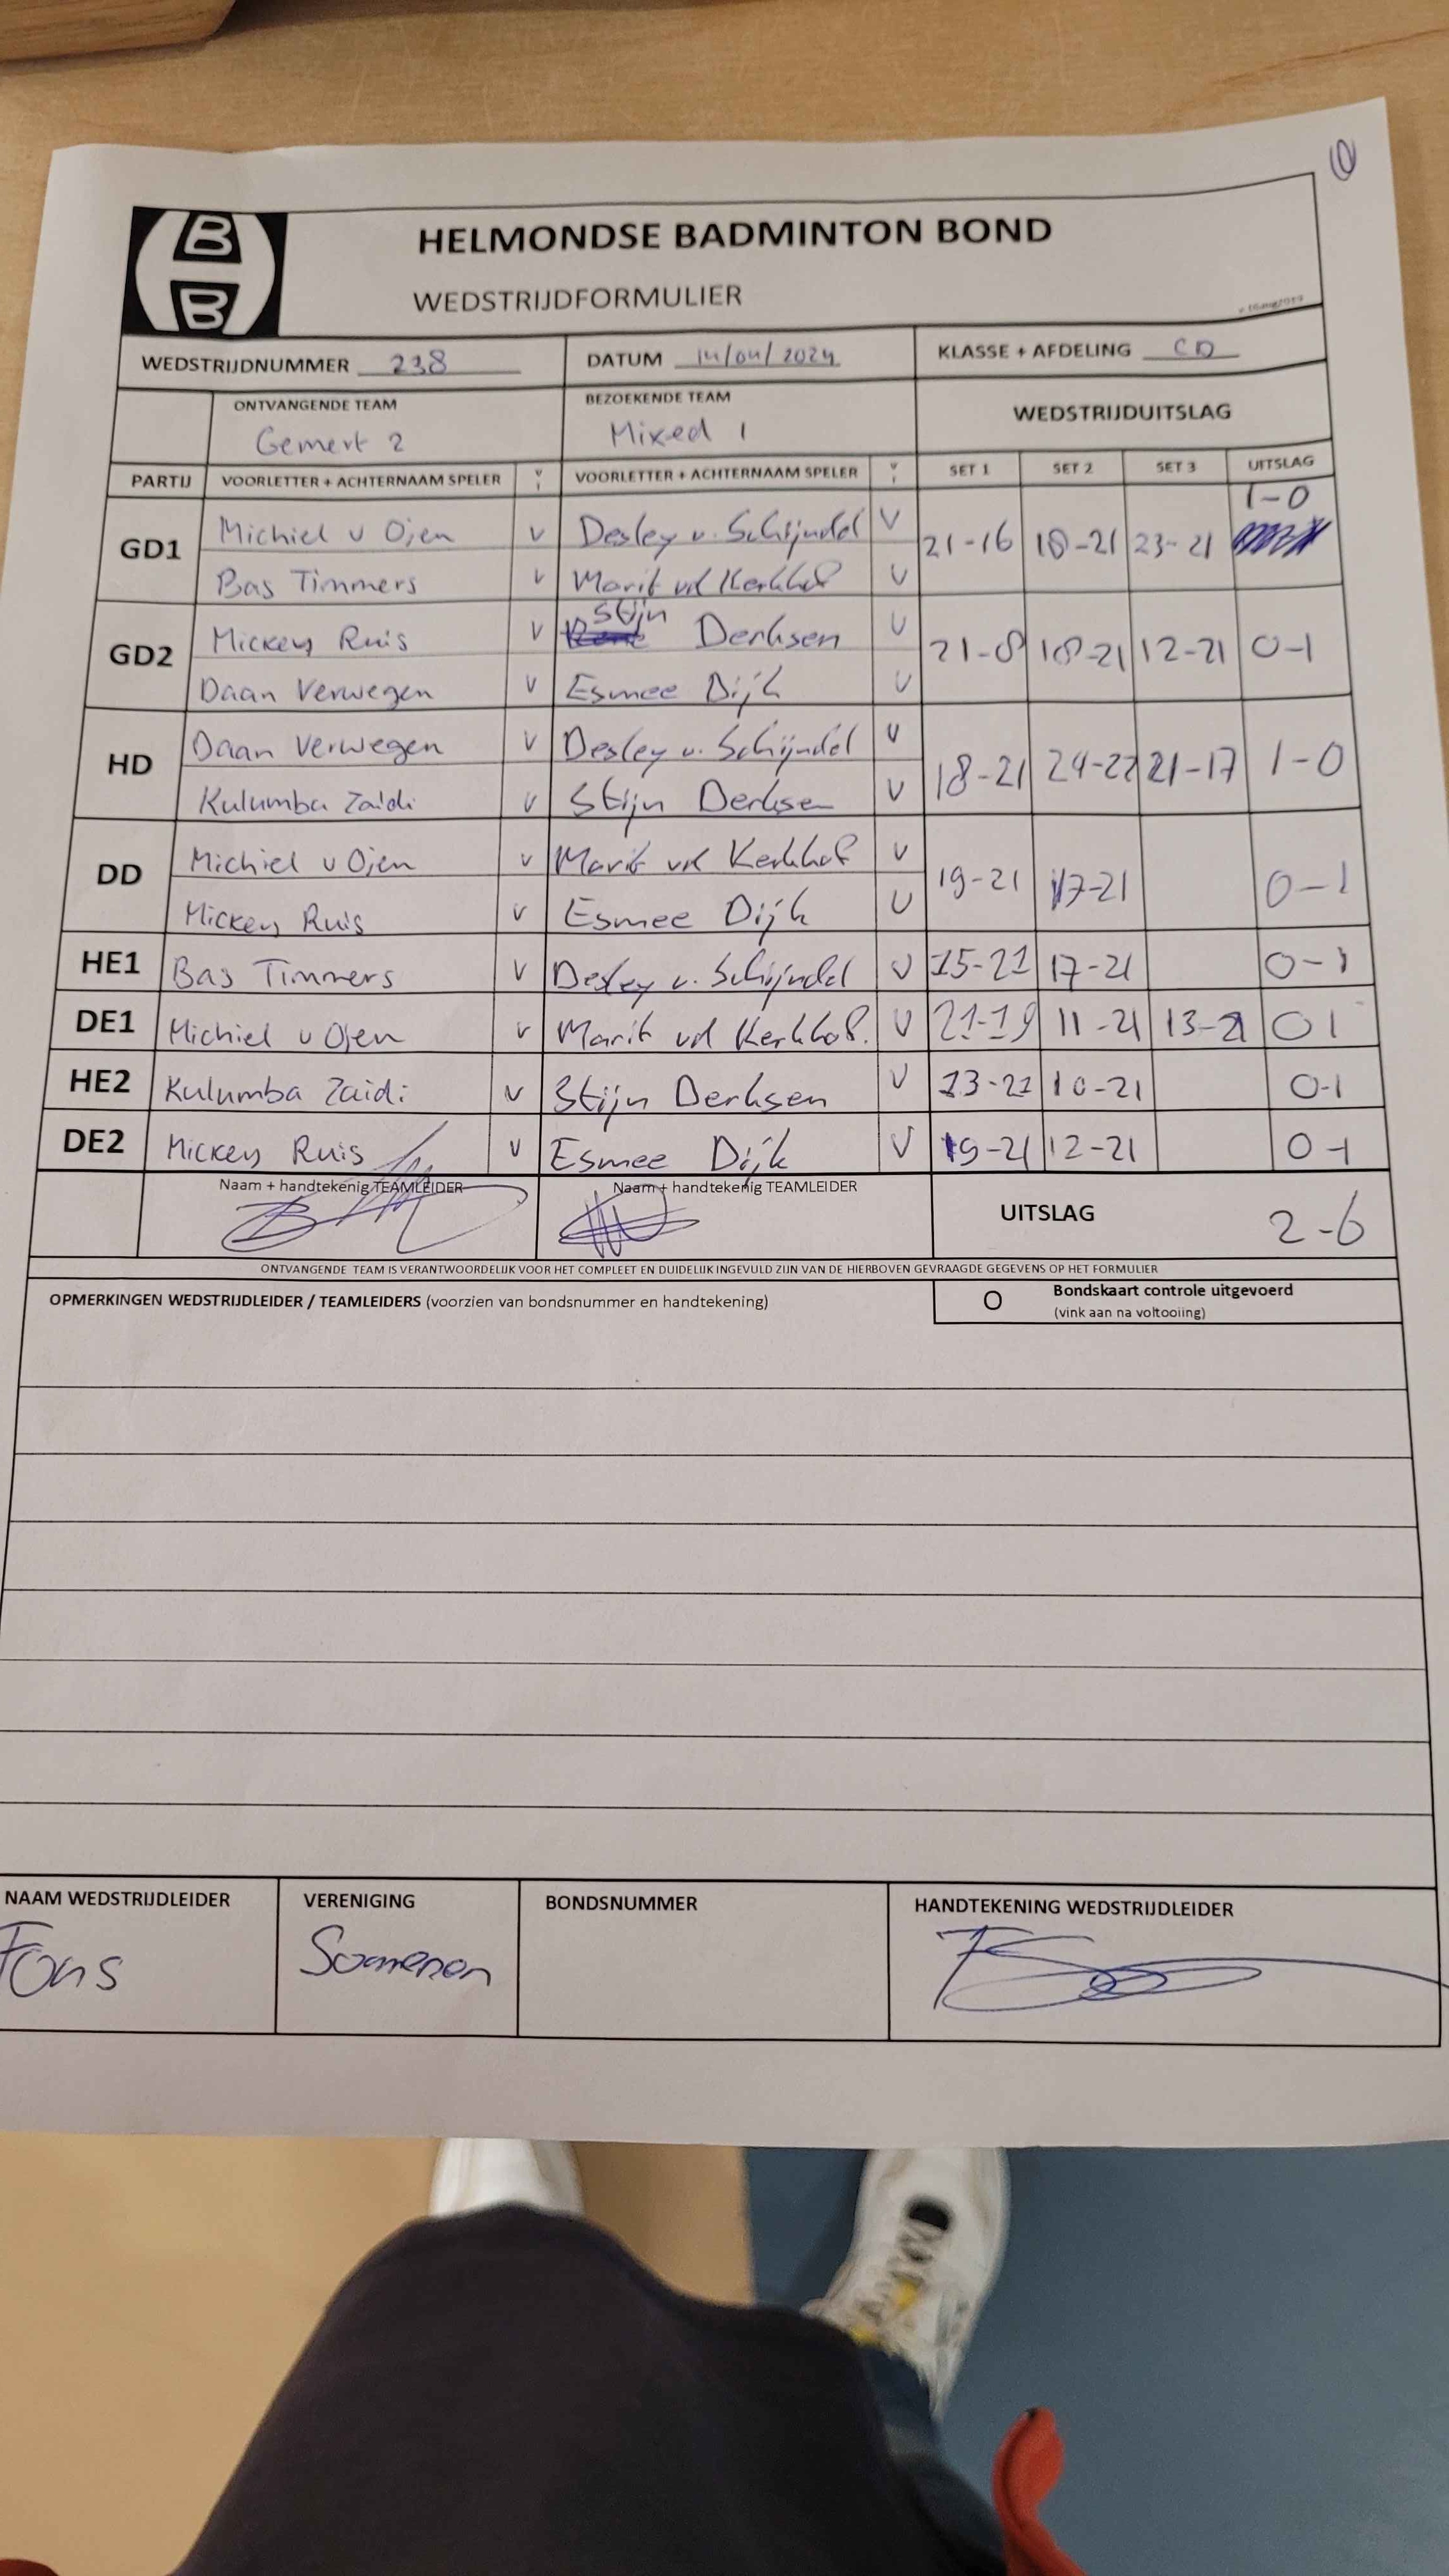 HELMONDSE BADMINTON BOND
WEDSTRIJDFORMULIER
WEDSTRIJDNUMMER 238 DATUM 14/04/2024 KLASSE + AFDELING CD
ONTVANGENDE TEAM BEZOEKENDE TEAM WEDSTRIJDUITSLAG
Gemert 2 Mixed 1
PARTIJ VOORLETTER + ACHTERNAAM SPELER V VOORLETTER + ACHTERNAAM SPELER V SET 1 SET 2 SET 3 UITSLAG
GD1 Michiel v Ojen v Desley v. Schijndel V 21-16 18-21 23-21 1-0
Bas Timmers v Marit vd Kerkhof V
GD2 Mickey Ruis V Stijn Derksen V 21-8 18-21 12-21 0-1
Daan Verwegen V Esmee Dijk V
HD Daan Verwegen V Desley v. Schijndel V 18-21 24-22 21-17 1-0
Kulumba Zaidi V Stijn Derksen V
DD Michiel v Ojen v Marit vd Kerkhof V 19-21 17-21 0-1
Mickey Ruis v Esmee Dijk V
HE1 Bas Timmers V Desley v. Schijndel V 15-21 17-21 0-1
DE1 Michiel v Ojen v Marit vd Kerkhof. V 21-19 11-21 13-21 0 1
HE2 Kulumba Zaidi V Stijn Derksen V 13-21 10-21 0-1
DE2 Mickey Ruis V Esmee Dijk V 19-21 12-21 0-1
Naam + handtekenig TEAMLEIDER Naam + handtekenig TEAMLEIDER UITSLAG 2-6
ONTVANGENDE TEAM IS VERANTWOORDELIJK VOOR HET COMPLEET EN DUIDELIJK INGEVULD ZIJN VAN DE HIERBOVEN GEVRAAGDE GEGEVENS OP HET FORMULIER
OPMERKINGEN WEDSTRIJDLEIDER / TEAMLEIDERS (voorzien van bondsnummer en handtekening) O Bondskaart controle uitgevoerd
(vink aan na voltooiing)
NAAM WEDSTRIJDLEIDER VERENIGING BONDSNUMMER HANDTEKENING WEDSTRIJDLEIDER
Fons Someren